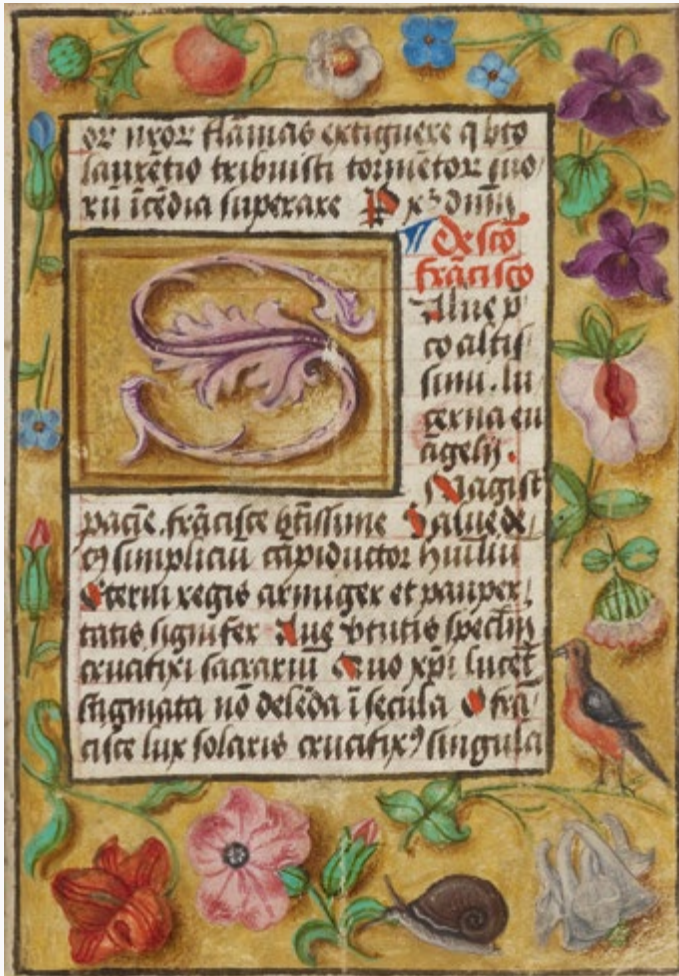 or uxor flāmas extiguere q bto
laurētio tribuisti tormētor suo
rū īcēdia superare P xp̄ dnm̄
¶ De sctō
frācisco
Salue p
co altis
simi. lu
cerna eu
āgelij.
Magist
pacis. frācisce btissime Salue
simpliciū dux ductor humiliū
Eterni regis armiger et pauper
tatis signifer Aue vtutis speclm̄
crucifixi sacrariū Quo xp̄i lucēt
stigmata nō delēda ī secula O frā
cisce lux solaris crucifixꝯ singula